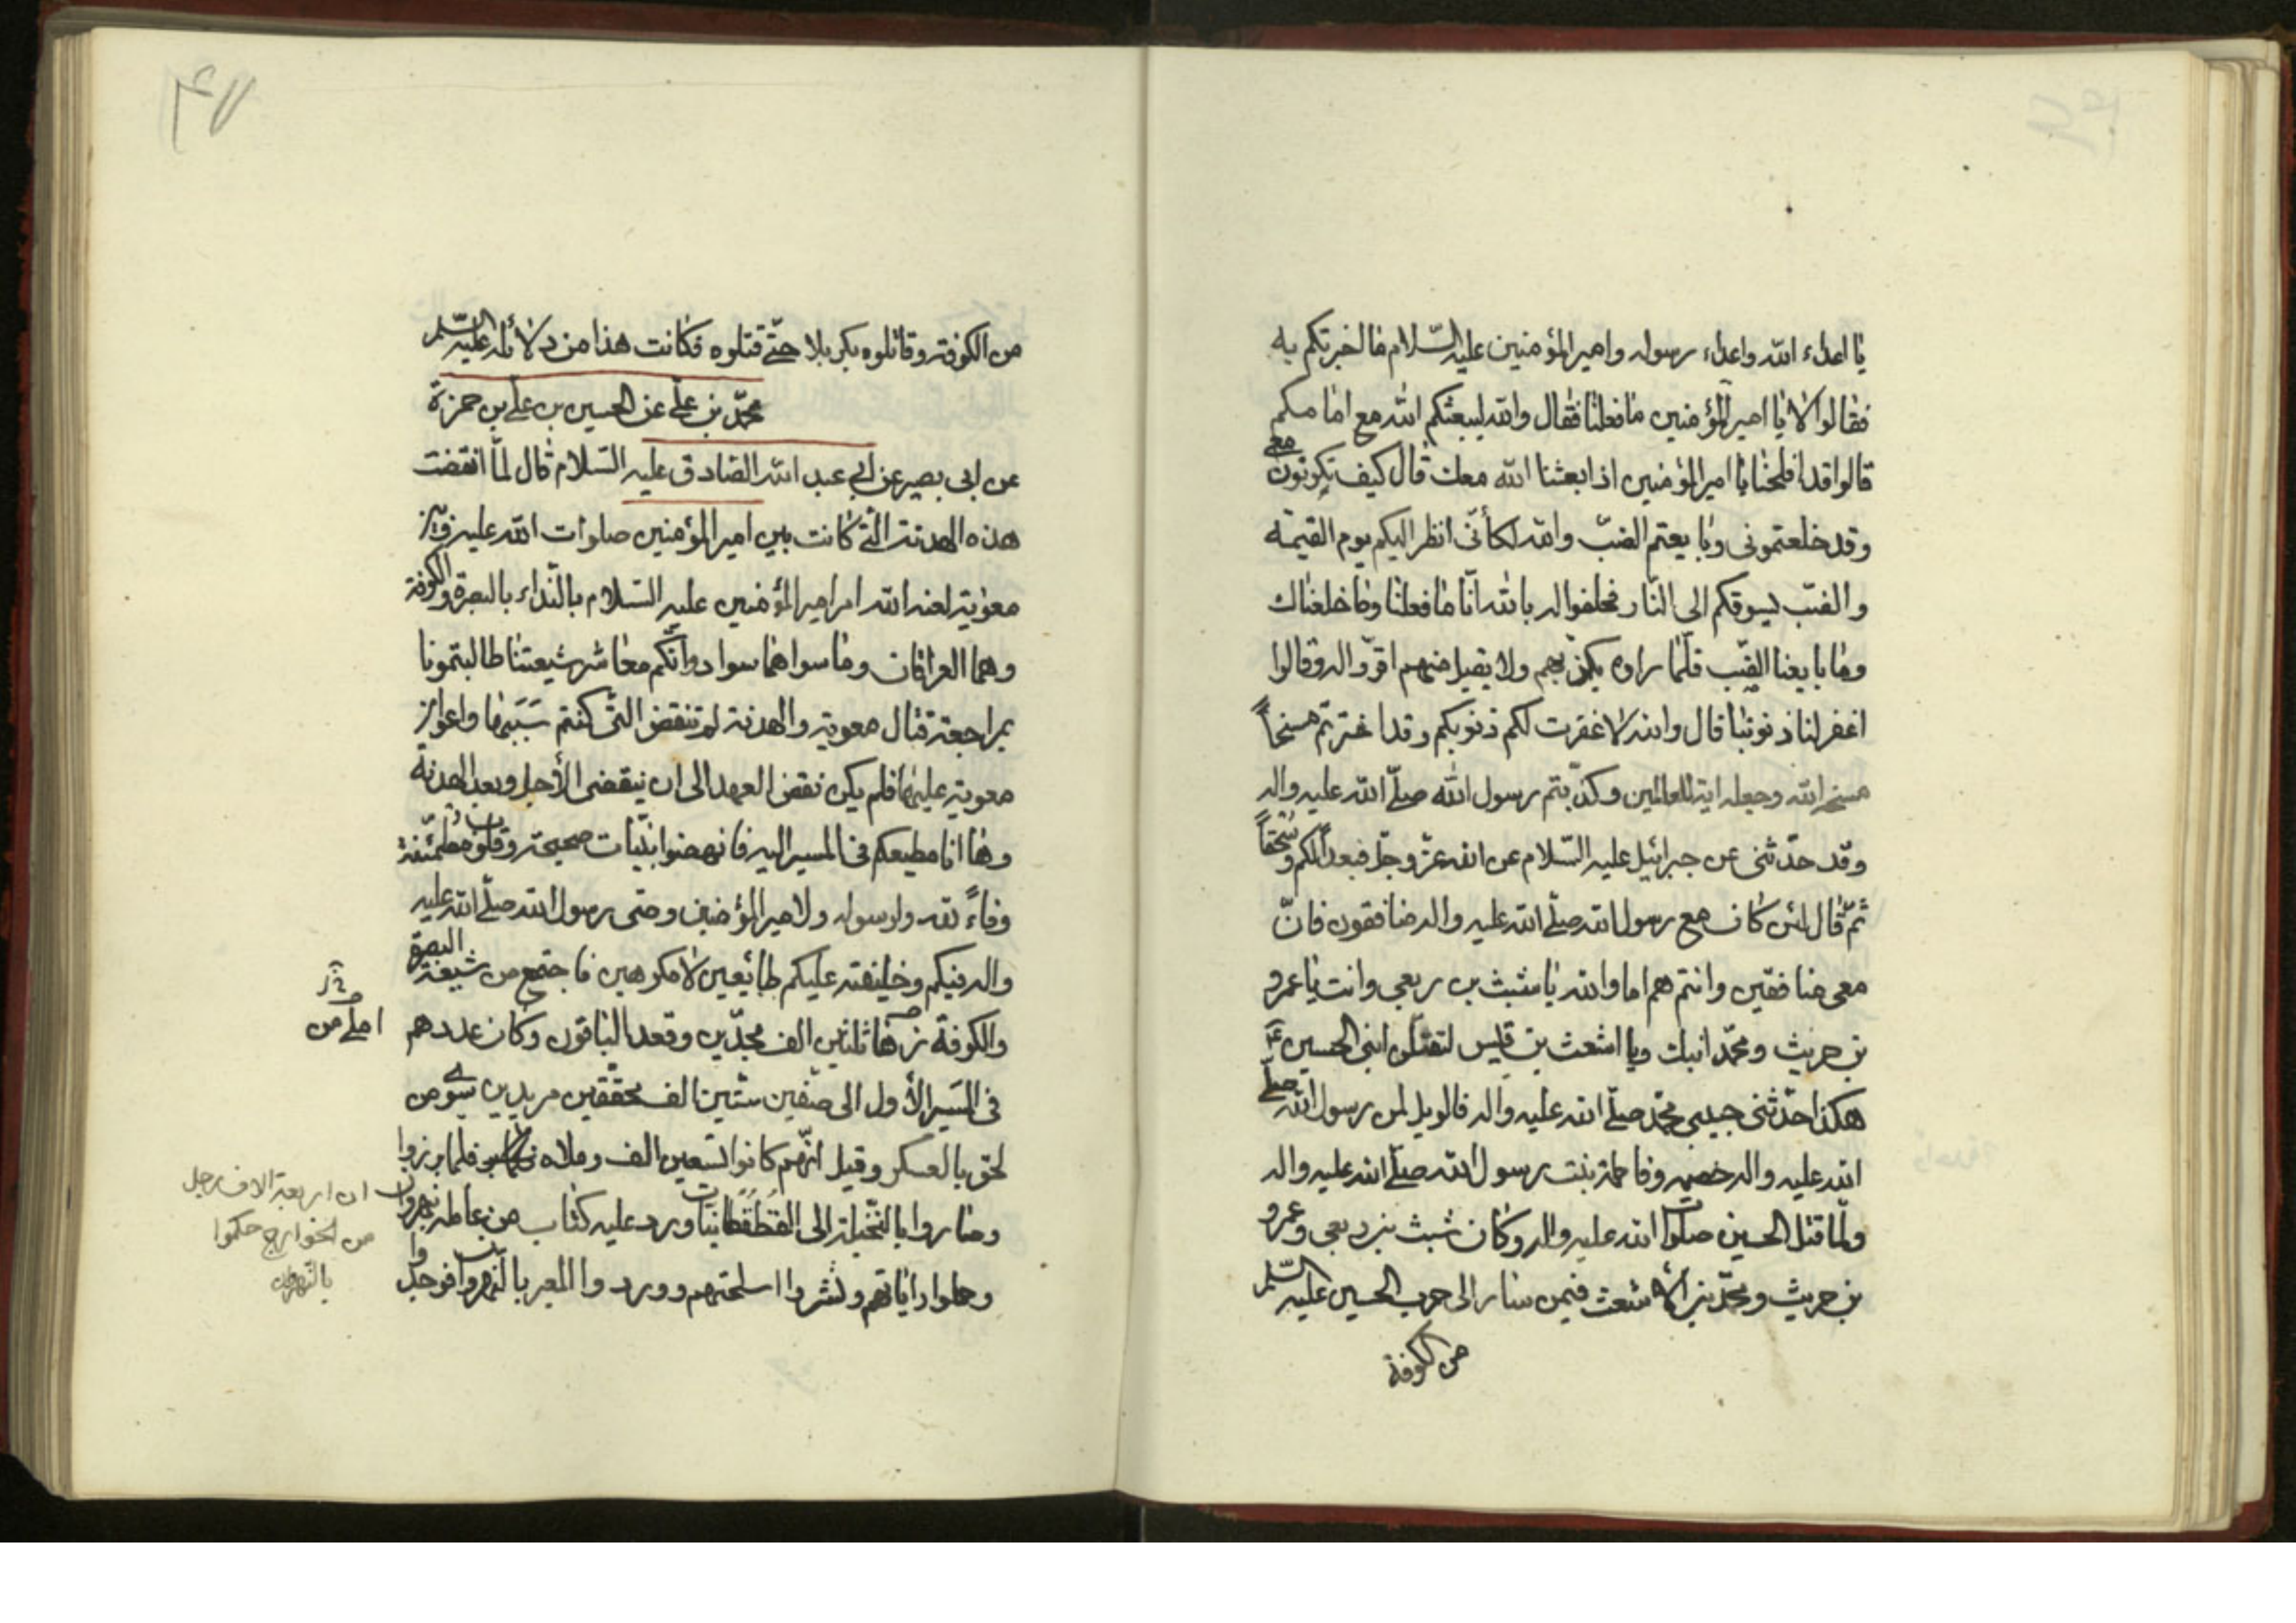 يا اعداء الله واعداء رسوله وامير المؤمنين عليه السّلام ما اخبرتكم به
فقالوا لا يا امير المؤمنين ما فعلنا فقال والله ليبعثكم الله مع امامكم
قالوا قد افلحنا يا امير المؤمنين اذا بعثنا الله معك قال كيف تكونون معى
وقد خلعتمونى وبايعتم الضبّ والله لكأنّى انظر اليكم يوم القيمة
والضبّ يسوقكم الى النّار فحلفوا له بالله انّا ما فعلنا وما خلعناك
وما بايعنا الضّب فلمّا راوه يكذّبهم ولا يقبل منهم اقرّوا له وقالوا
اغفر لنا ذنوبنا قال والله لا غفرت لكم ذنوبكم وقد اخترتم مسخاً
مسخه الله وجعله اية للعالمين وكذّبتم رسول الله صلّى الله عليه واله
وقد حدّثنى عن جبرائيل عليه السّلام عن الله عزّ وجلّ فبعداً لكم وسحقاً
ثمّ قال لئن كان مع رسول الله صلّى الله عليه واله منافقون فانّ
معى منافقين وانتم هم اما والله يا شبث بن ربعى وانت يا عمرو
بن حريث ومحمّد ابنك ويا اشعث بن قيس لتقتلن ابنى الحسين ع
هكذا حدّثنى حبيبى محمّد صلّى الله عليه واله فالويل لمن رسول الله صلّى
الله عليه واله خصمه وفاطمة بنت رسول الله صلّى الله عليه واله
ولمّا قتل الحسين صلوات الله عليه واله وكان شبث بن ربعى وعمرو
بن حريث ومحمّد بن الأشعث فيمن سار الى حرب الحسين عليه السّلم
من الكوفة
٤٧
من الكوفة وقاتلوه بكربلا حتّى قتلوه فكانت هذا من دلائله عليه السّلم
محمّد بن علىّ عن الحسين بن علىّ بن حمزة
عن ابى بصير عن ابى عبد الله الصّادق عليه السّلام قال لمّا انقضت
هذه الهدنة الّتى كانت بين امير المؤمنين صلوات الله عليه وبين
معوية لعنه الله امر امير المؤمنين عليه السّلام بالنّداء بالبصرة والكوفة
وهما العراقان وما سواهما سواد وانّكم معاشر شيعتنا طالبتمونا
بمراجعة قتال معوية والهدنة لم تنقض الّتى كنتم سببها واعواز
معوية عليها فلم يكن نقض العهد الى ان ينقضى الأجل وبعد الهدنة
وها انا مطيعكم فى المسير اليه فانهضوا بنيّات صحيحة وقلوب مطمئنّة
وفاءً لله ولرسوله ولامير المؤمنين وصى رسول الله صلّى الله عليه
واله فيكم وخليفته عليكم طائعين لا مكرهين فاجتمع من شيعة البصرة
والكوفة زهاثلثين الف مجدّين وقعد الباقون وكان عددهم
املى من
فى المسير الأول الى صفّين ستّين الف محققين مريدين سوى من
لحق بالعسكر وقيل انّهم كانوا تسعين الف فلما برزوا
وصاروا بالنّخيلة الى القطقطانيات ورد عليه كتاب من عامله نهروان
ان اربعة الاف رجل
من الخوارج حكموا
بالنّهروان
وحملوا راياتهم ونشروا اسلحتهم ووردوا المعبر بالنهروان فوجدوا